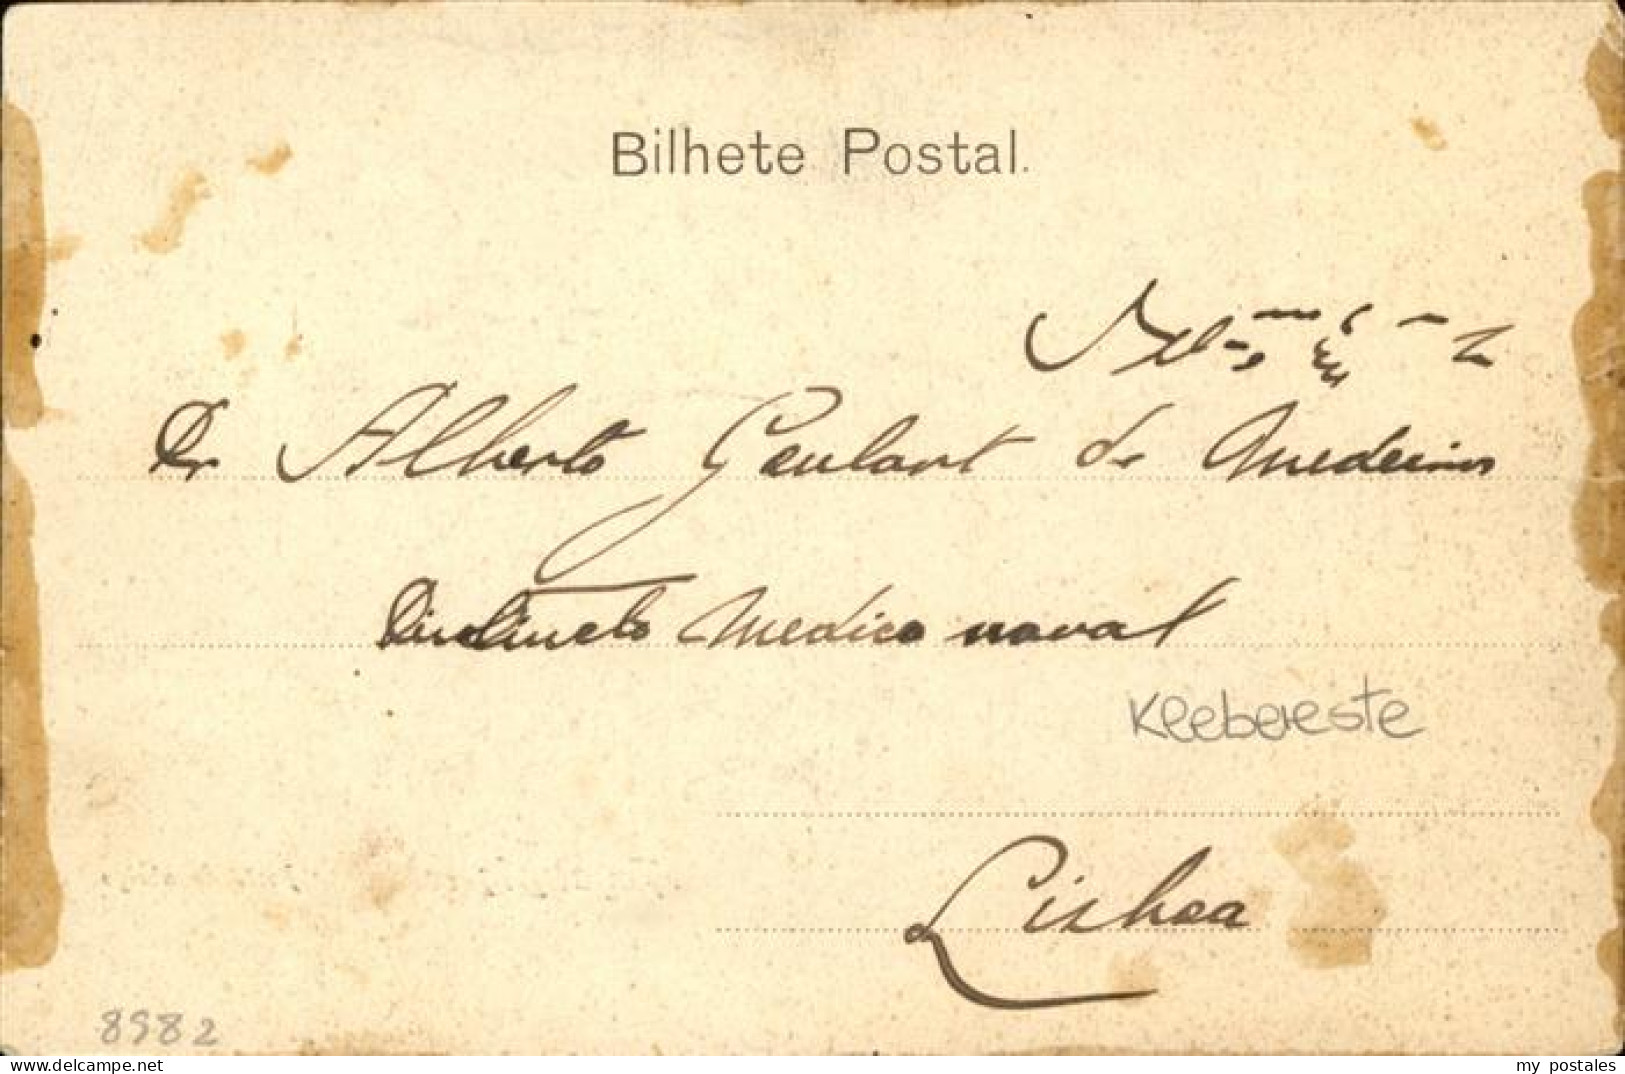 Bilhete Postal.
Dr Alberto Goulart de Medeiros
Distincto Medico naval
Kleebereste
Lisboa
8982
delcampe.net
my_postales